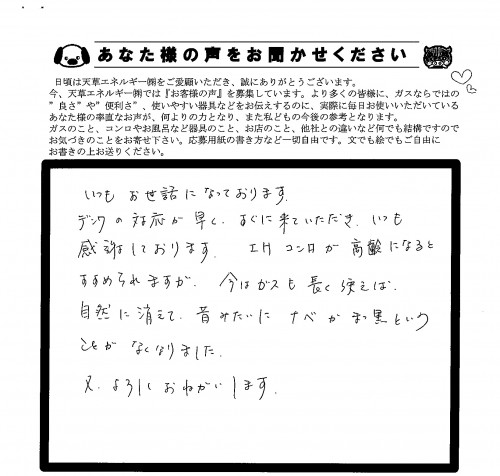 あなた様の声をお聞かせください
日頃は天草エネルギー㈱をご愛顧いただき、誠にありがとうございます。
今、天草エネルギー㈱では『お客様の声』を募集しています。より多くの皆様に、ガスならではの
”良さ”や”便利さ”、使いやすい器具などをお伝えするのに、実際に毎日お使いいただいている
あなた様の率直なお声が、何よりの力となり、また私どもの今後の参考となります。
ガスのこと、コンロやお風呂など器具のこと、お店のこと、他社との違いなど何でも結構ですので
お気づきのことをお寄せ下さい。応募用紙の書き方など一切自由です。文でも絵でもご自由に
お書きの上お送りください。
いつも お世話になっております.
デンワの 対応が 早く、すぐに来ていただき、いつも
感謝しております. エH コンロが 高齢になると
すすめられますが、今はガスも 長く使えば、
自然に 消えて、昔みたいに ナベが まっ黒という
ことが なくなりました.
又、よろしく おねがいします.